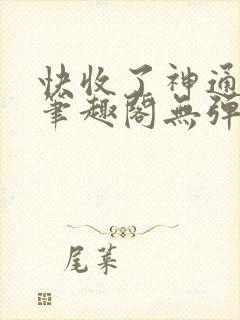 快收了神通
笔趣阁無弹
尾葉